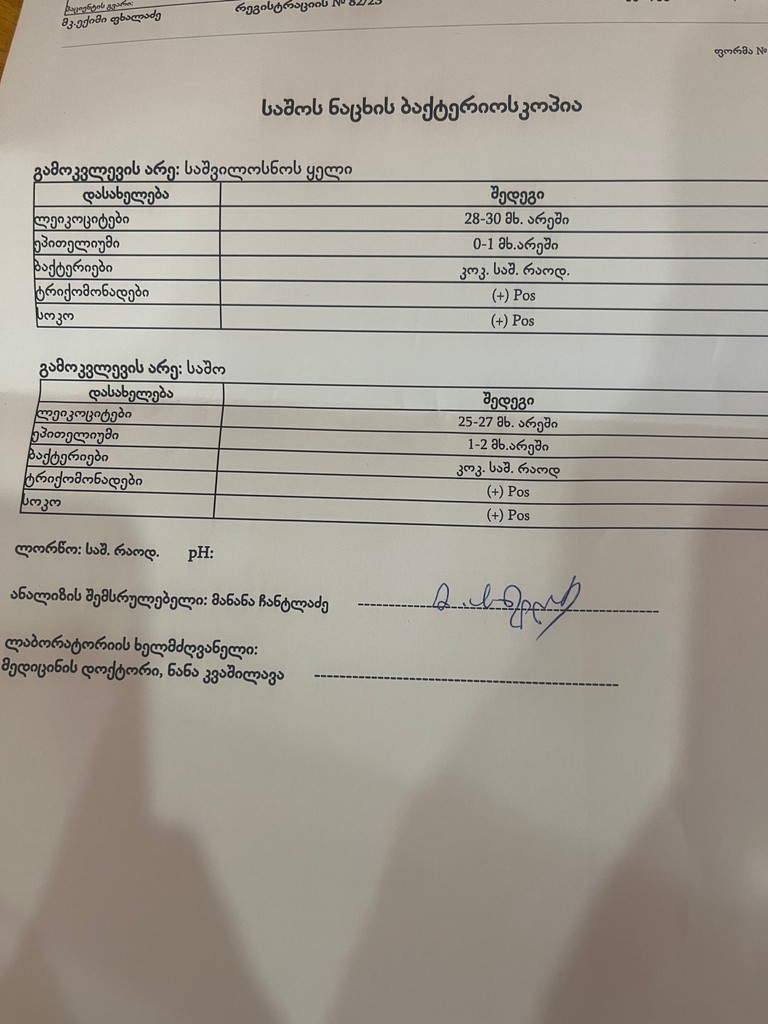 პაციენტის გვარი:
მკ.ექიმი ფხალაძე
რეგისტრაციის № 82/25
ფორმა №
საშოს ნაცხის ბაქტერიოსკოპია
გამოკვლევის არე: საშვილოსნოს ყელი
დასახელება შედეგი
ლეიკოციტები 28-30 მხ. არეში
ეპითელიუმი 0-1 მხ.არეში
ბაქტერიები კოკ. საშ. რაოდ.
ტრიქომონადები (+) Pos
სოკო (+) Pos
გამოკვლევის არე: საშო
დასახელება შედეგი
ლეიკოციტები 25-27 მხ. არეში
ეპითელიუმი 1-2 მხ.არეში
ბაქტერიები კოკ. საშ. რაოდ
ტრიქომონადები (+) Pos
სოკო (+) Pos
ლორწო: საშ. რაოდ. pH:
ანალიზის შემსრულებელი: მანანა ჩანტლაძე
ლაბორატორიის ხელმძღვანელი:
მედიცინის დოქტორი, ნანა კვაშილავა